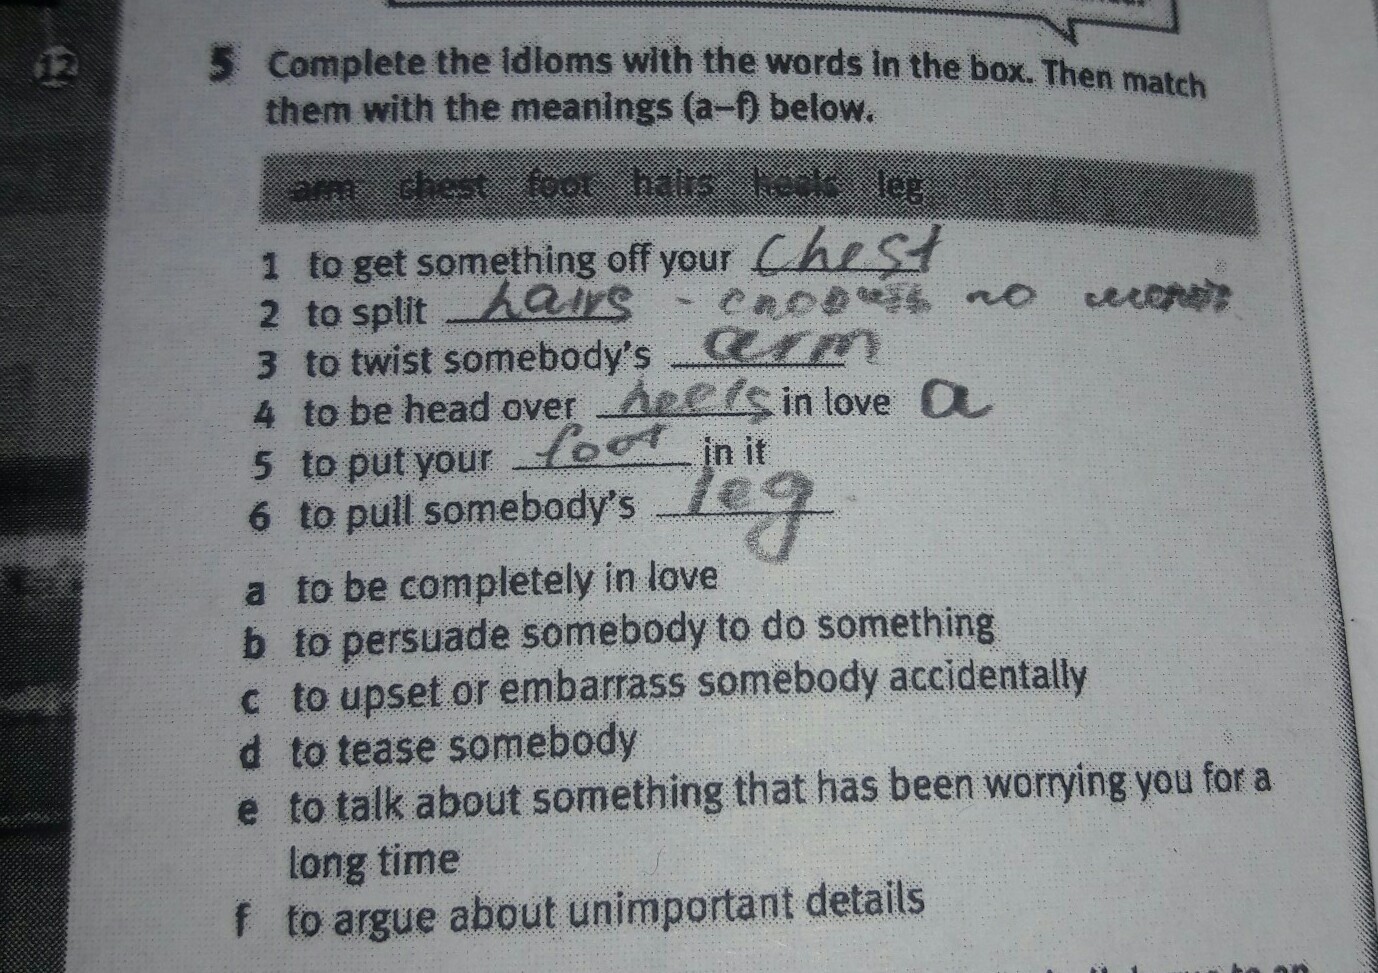 12
5 Complete the idioms with the words in the box. Then match
them with the meanings (a–f) below.
arm chest foot hairs heels leg
1 to get something off your chest
2 to split hairs - no
3 to twist somebody's arm
4 to be head over heels in love a
5 to put your foot in it
6 to pull somebody's leg
a to be completely in love
b to persuade somebody to do something
c to upset or embarrass somebody accidentally
d to tease somebody
e to talk about something that has been worrying you for a
long time
f to argue about unimportant details